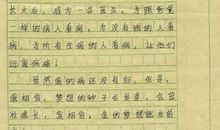 长大后，成为一名医生，为跟爸爸
一样的病人看病，为没有钱的人看
病，为所有生病的人看病，让他们
远离病痛！
虽然爸的病还没有好，但是，
我相信，梦想的种子会发芽，会茁
壮成长，我相信，我的梦想就在前